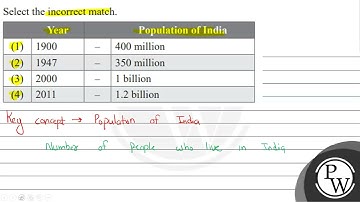 Select the incorrect match.
Year Population of India
(1) 1900 – 400 million
(2) 1947 – 350 million
(3) 2000 – 1 billion
(4) 2011 – 1.2 billion
Key concept → Population of India
Number of people who live in India
PW